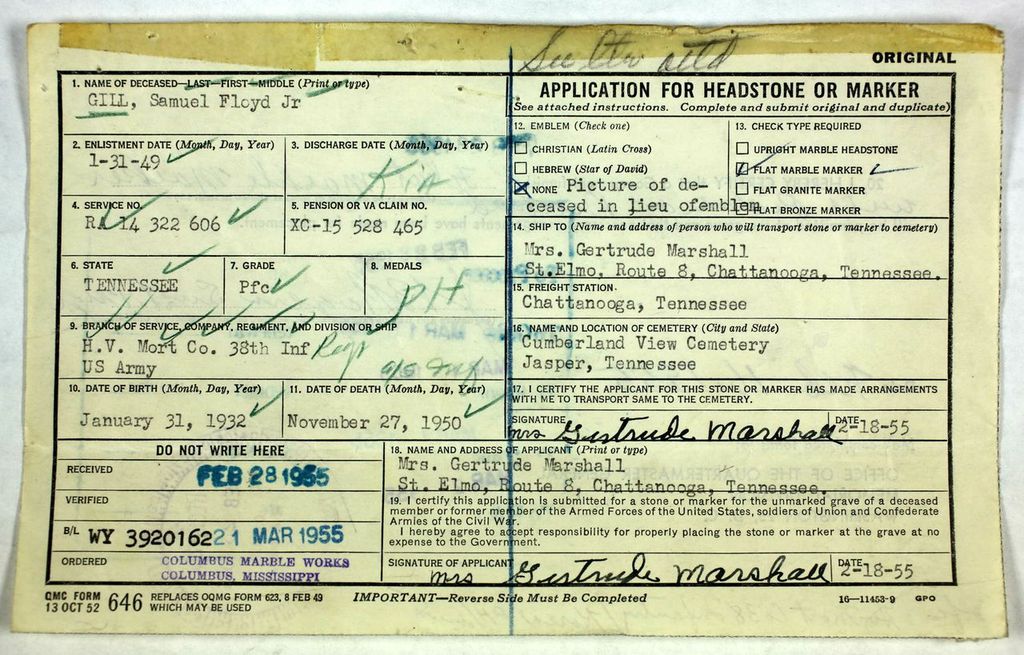 See ltr attd
ORIGINAL
1. NAME OF DECEASED—LAST—FIRST—MIDDLE (Print or type)
GILL, Samuel Floyd Jr
2. ENLISTMENT DATE (Month, Day, Year)
1-31-49
3. DISCHARGE DATE (Month, Day, Year)
KIA
4. SERVICE NO.
RA 14 322 606
5. PENSION OR VA CLAIM NO.
XC-15 528 465
6. STATE
TENNESSEE
7. GRADE
Pfc
8. MEDALS
PH
9. BRANCH OF SERVICE, COMPANY, REGIMENT, AND DIVISION OR SHIP
H.V. Mort Co. 38th Inf Regt
US Army
10. DATE OF BIRTH (Month, Day, Year)
January 31, 1932
11. DATE OF DEATH (Month, Day, Year)
November 27, 1950
DO NOT WRITE HERE
RECEIVED
FEB 28 1955
VERIFIED
B/L WY 3920162 21 MAR 1955
ORDERED
COLUMBUS MARBLE WORKS
COLUMBUS, MISSISSIPPI
APPLICATION FOR HEADSTONE OR MARKER
(See attached instructions. Complete and submit original and duplicate)
12. EMBLEM (Check one)
CHRISTIAN (Latin Cross)
HEBREW (Star of David)
NONE Picture of de-
ceased in lieu ofemblem
13. CHECK TYPE REQUIRED
UPRIGHT MARBLE HEADSTONE
FLAT MARBLE MARKER
FLAT GRANITE MARKER
FLAT BRONZE MARKER
14. SHIP TO (Name and address of person who will transport stone or marker to cemetery)
Mrs. Gertrude Marshall
St.Elmo, Route 8, Chattanooga, Tennessee.
15. FREIGHT STATION
Chattanooga, Tennessee
16. NAME AND LOCATION OF CEMETERY (City and State)
Cumberland View Cemetery
Jasper, Tennessee
17. I CERTIFY THE APPLICANT FOR THIS STONE OR MARKER HAS MADE ARRANGEMENTS
WITH ME TO TRANSPORT SAME TO THE CEMETERY.
SIGNATURE
mrs Gertrude Marshall
DATE
2-18-55
18. NAME AND ADDRESS OF APPLICANT (Print or type)
Mrs. Gertrude Marshall
St. Elmo, Route 8, Chattanooga, Tennessee.
19. I certify this application is submitted for a stone or marker for the unmarked grave of a deceased
member or former member of the Armed Forces of the United States, soldiers of Union and Confederate
Armies of the Civil War.
I hereby agree to accept responsibility for properly placing the stone or marker at the grave at no
expense to the Government.
SIGNATURE OF APPLICANT
mrs Gertrude Marshall
DATE
2-18-55
QMC FORM
13 OCT 52 646
REPLACES OQMG FORM 623, 8 FEB 49
WHICH MAY BE USED
IMPORTANT—Reverse Side Must Be Completed
16—11453-9 GPO